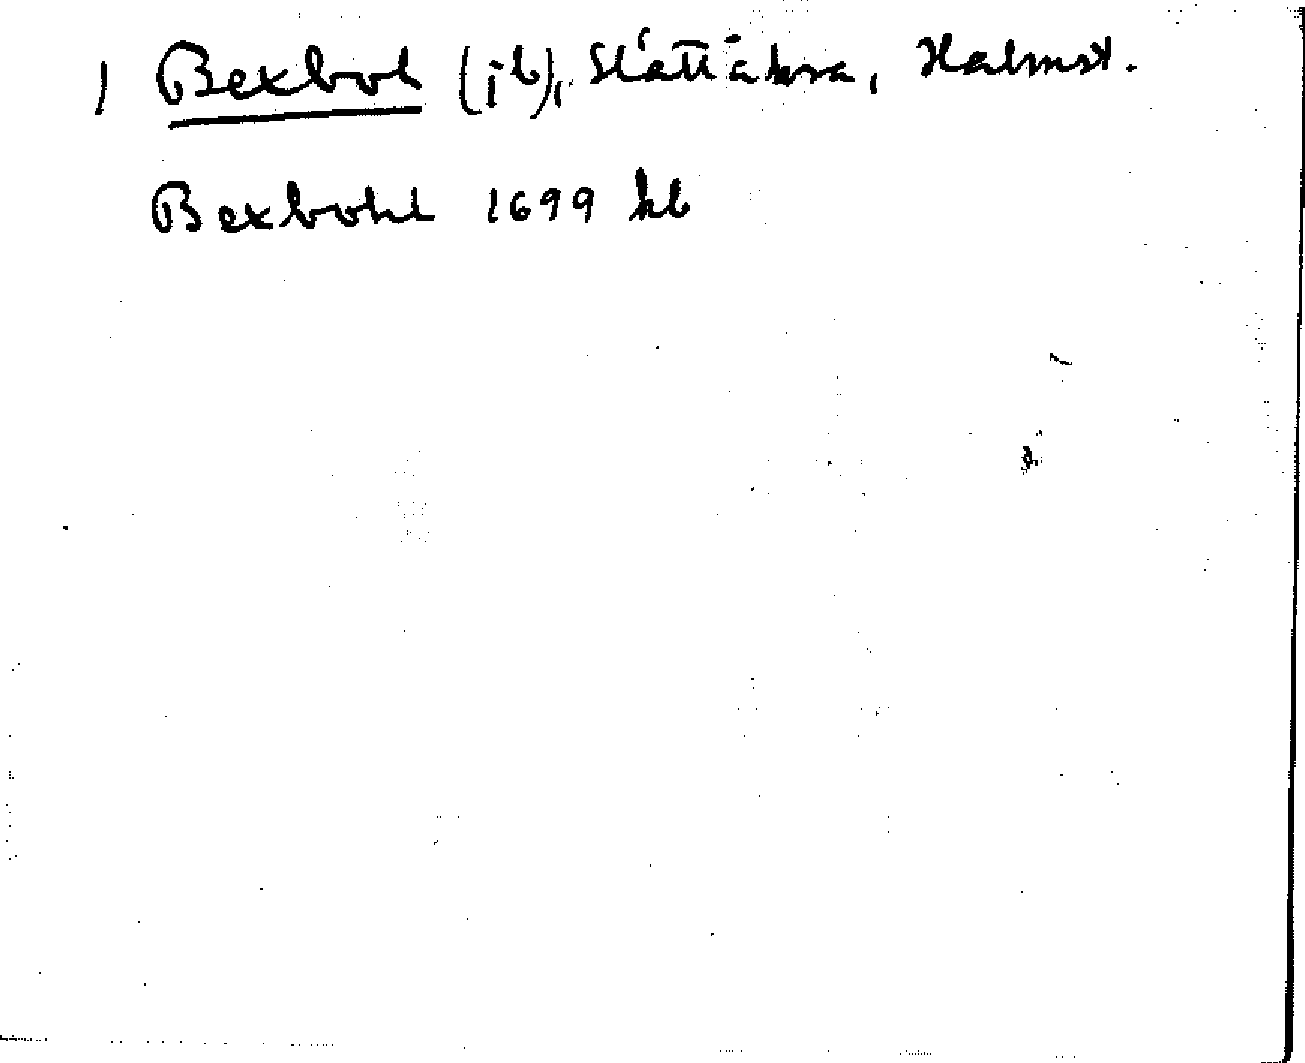 ) Bexbol (jb), Slättåkra, Halmst.
Bexbohl 1699 kb